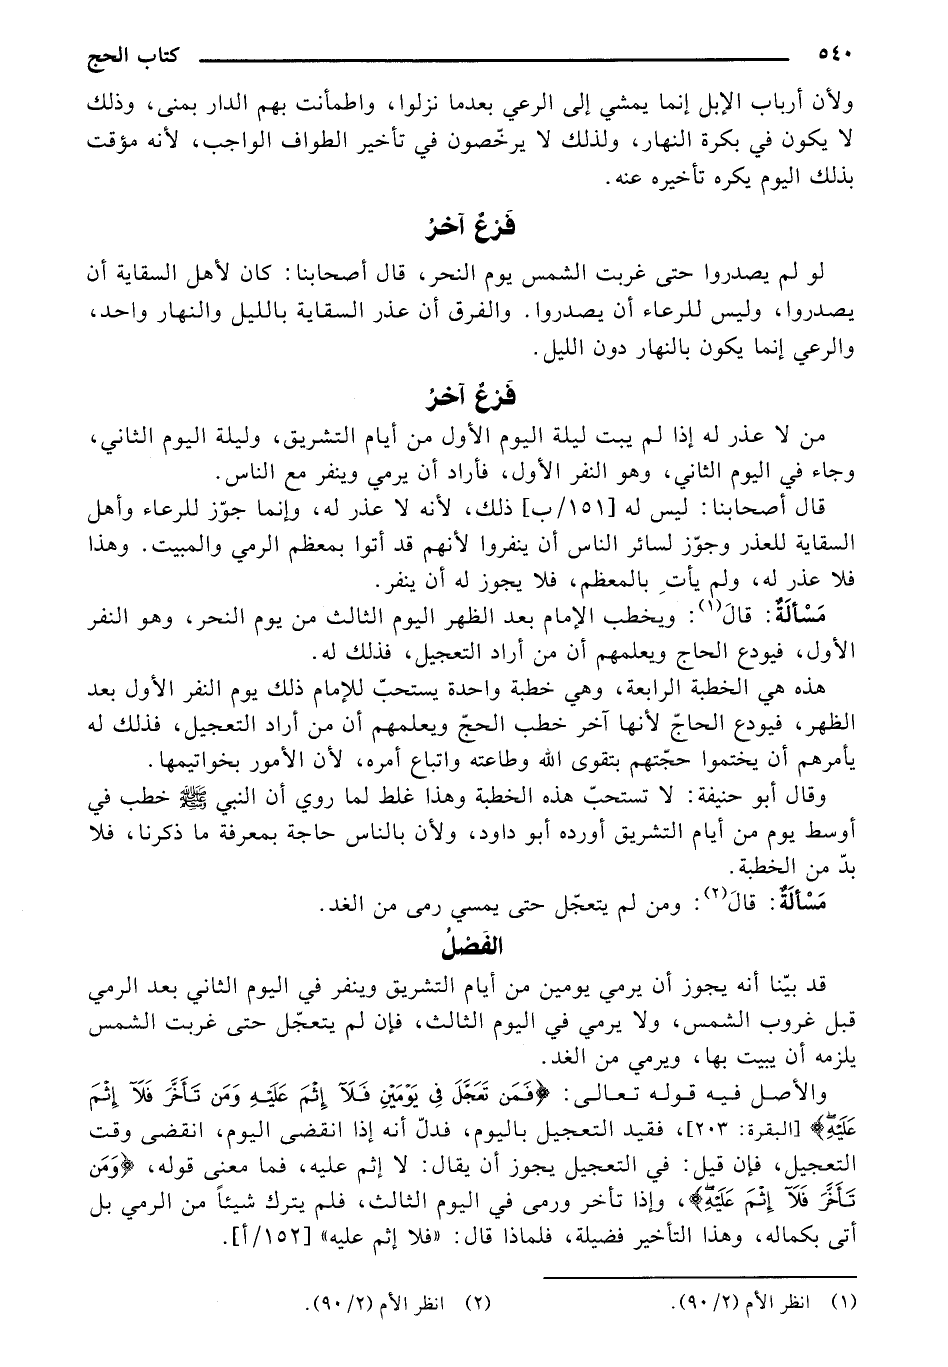 ٥٤٠ كتاب الحج
ولأن أرباب الإبل إنما يمشي إلى الرعي بعدما نزلوا، واطمأنت بهم الدار بمنى، وذلك
لا يكون في بكرة النهار، ولذلك لا يرخّصون في تأخير الطواف الواجب، لأنه مؤقت
بذلك اليوم يكره تأخيره عنه.
فَرْعٌ آخرُ
لو لم يصدروا حتى غربت الشمس يوم النحر، قال أصحابنا: كان لأهل السقاية أن
يصدروا، وليس للرعاء أن يصدروا. والفرق أن عذر السقاية بالليل والنهار واحد،
والرعي إنما يكون بالنهار دون الليل.
فَرْعٌ آخرُ
من لا عذر له إذا لم يبت ليلة اليوم الأول من أيام التشريق، وليلة اليوم الثاني،
وجاء في اليوم الثاني، وهو النفر الأول، فأراد أن يرمي وينفر مع الناس.
قال أصحابنا: ليس له [١٥١/ب] ذلك، لأنه لا عذر له، وإنما جوّز للرعاء وأهل
السقاية للعذر وجوّز لسائر الناس أن ينفروا لأنهم قد أتوا بمعظم الرمي والمبيت. وهذا
فلا عذر له، ولم يأتِ بالمعظم، فلا يجوز له أن ينفر.
مَسْأَلَةٌ: قالَ(١): ويخطب الإمام بعد الظهر اليوم الثالث من يوم النحر، وهو النفر
الأول، فيودع الحاج ويعلمهم أن من أراد التعجيل، فذلك له.
هذه هي الخطبة الرابعة، وهي خطبة واحدة يستحبّ للإمام ذلك يوم النفر الأول بعد
الظهر، فيودع الحاجّ لأنها آخر خطب الحجّ ويعلمهم أن من أراد التعجيل، فذلك له
يأمرهم أن يختموا حجّتهم بتقوى الله وطاعته واتباع أمره، لأن الأمور بخواتيمها.
وقال أبو حنيفة: لا تستحبّ هذه الخطبة وهذا غلط لما روي أن النبي ﷺ خطب في
أوسط يوم من أيام التشريق أورده أبو داود، ولأن بالناس حاجة بمعرفة ما ذكرنا، فلا
بدّ من الخطبة.
مَسْأَلَةٌ: قالَ(٢): ومن لم يتعجّل حتى يمسي رمى من الغد.
الفَصْلُ
قد بيّنا أنه يجوز أن يرمي يومين من أيام التشريق وينفر في اليوم الثاني بعد الرمي
قبل غروب الشمس، ولا يرمي في اليوم الثالث، فإن لم يتعجّل حتى غربت الشمس
يلزمه أن يبيت بها، ويرمي من الغد.
والأصل فيه قوله تعالى: ﴿فَمَن تَعَجَّلَ فِي يَوْمَيْنِ فَلَآ إِثْمَ عَلَيْهِ وَمَن تَأَخَّرَ فَلَآ إِثْمَ
عَلَيْهِ﴾ [البقرة: ٢٠٣]، فقيد التعجيل باليوم، فدلّ أنه إذا انقضى اليوم، انقضى وقت
التعجيل، فإن قيل: في التعجيل يجوز أن يقال: لا إثم عليه، فما معنى قوله، ﴿وَمَن
تَأَخَّرَ فَلَآ إِثْمَ عَلَيْهِ﴾، وإذا تأخر ورمى في اليوم الثالث، فلم يترك شيئاً من الرمي بل
أتى بكماله، وهذا التأخير فضيلة، فلماذا قال: «فلا إثم عليه» [١٥٢/أ].
(١) انظر الأم (٩٠/٢). (٢) انظر الأم (٩٠/٢).